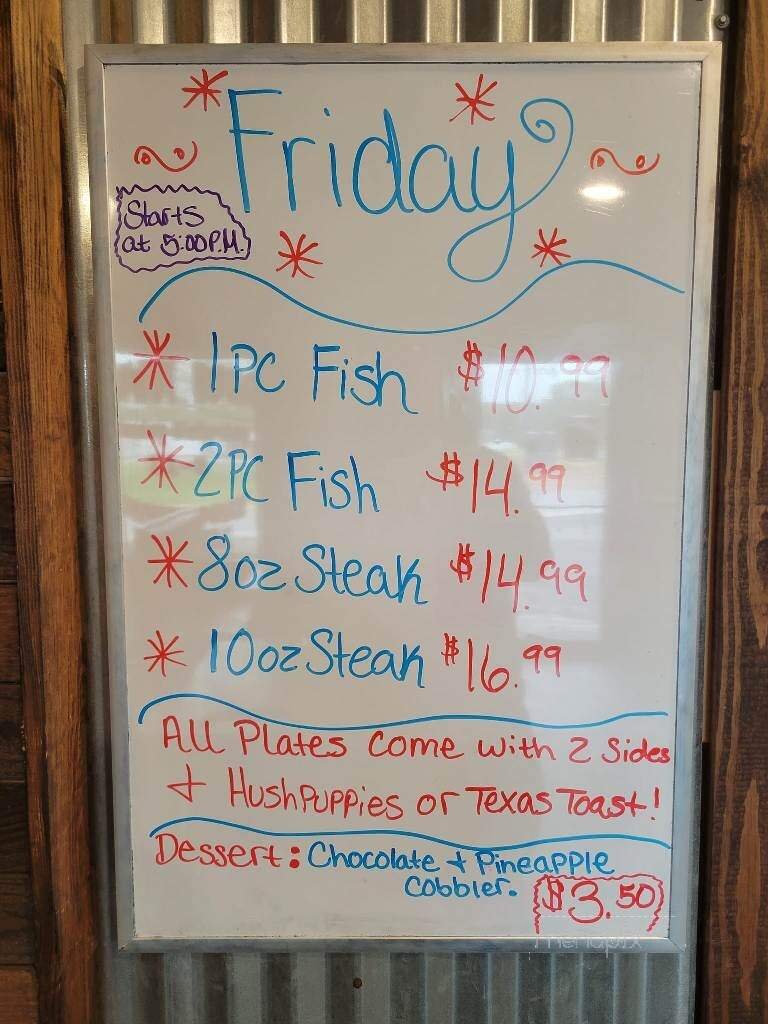 Friday
Starts
at 5:00 P.M.
1PC Fish $10.99
2PC Fish $14.99
8oz Steak $14.99
10oz Steak $16.99
All Plates come with 2 Sides
+ HushPuppies or Texas Toast!
Dessert: Chocolate + Pineapple
Cobbler. $3.50